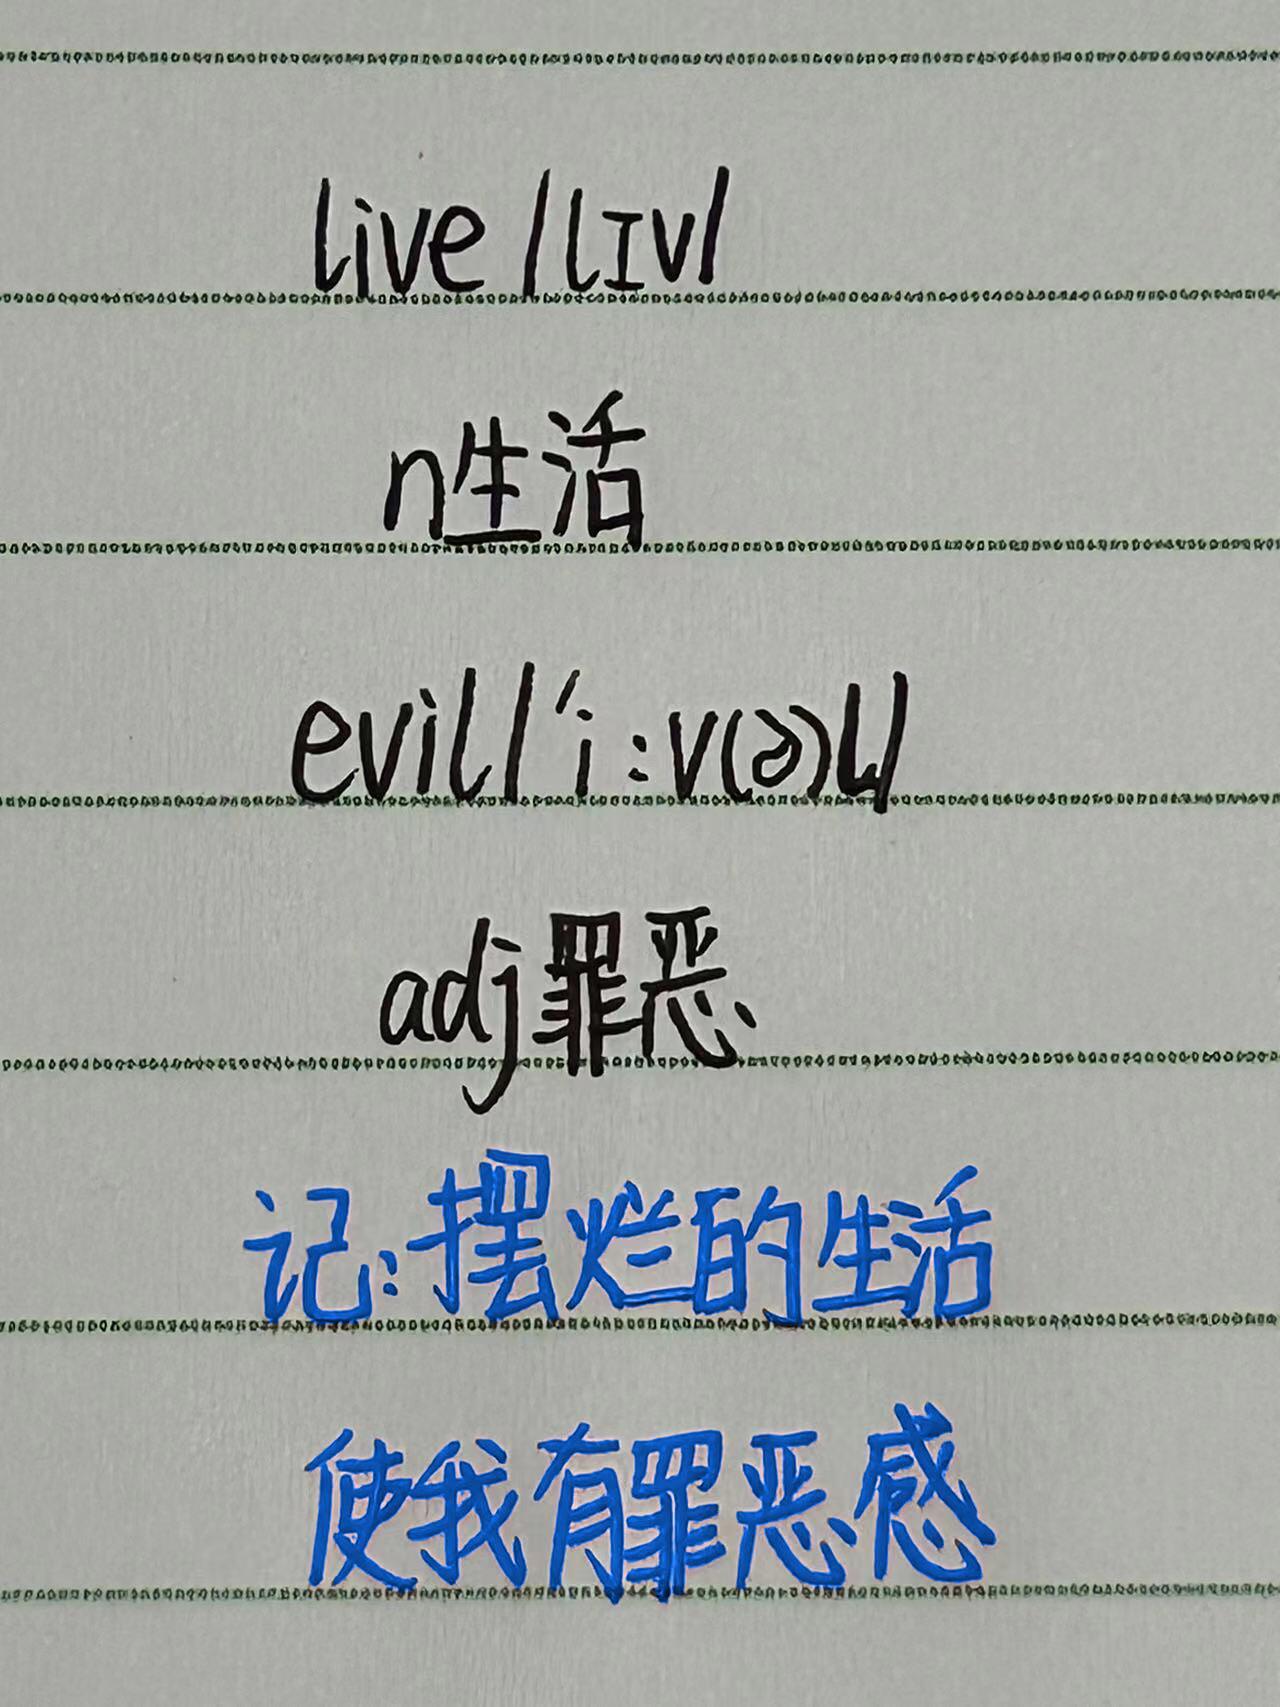 live /lɪv/
n生活
evil/'i:v(ə)l/
adj罪恶
记:摆烂的生活
使我有罪恶感